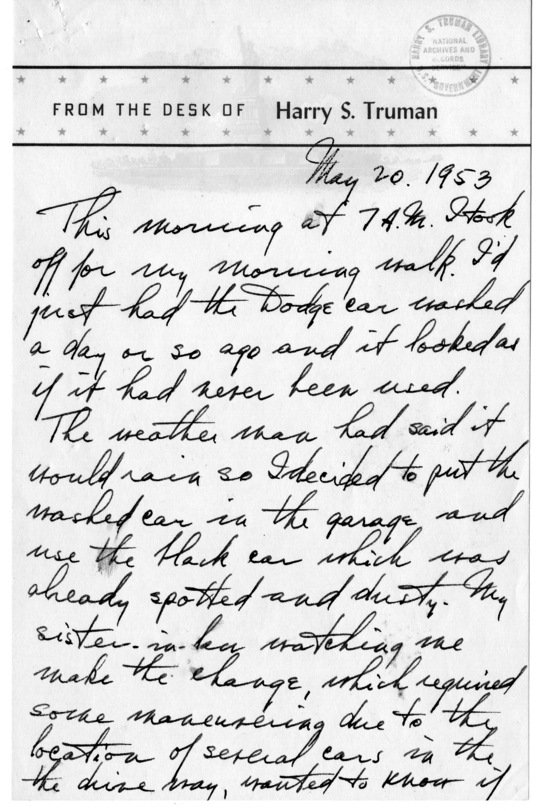 HARRY S. TRUMAN LIBRARY
NATIONAL
ARCHIVES AND
RECORDS
SERVICE
U.S. GOVERNMENT
FROM THE DESK OF Harry S. Truman
May 20. 1953
This morning at 7 A.M. I took
off for my morning walk. I'd
just had the Dodge car washed
a day or so ago and it looked as
if it had never been used.
The weather man had said it
would rain so I decided to put the
washed car in the garage and
use the black car which was
already spotted and dusty. My
sister-in-law watching me
make the change, which required
some maneuvering due to the
location of several cars in the
the drive way, wanted to know if